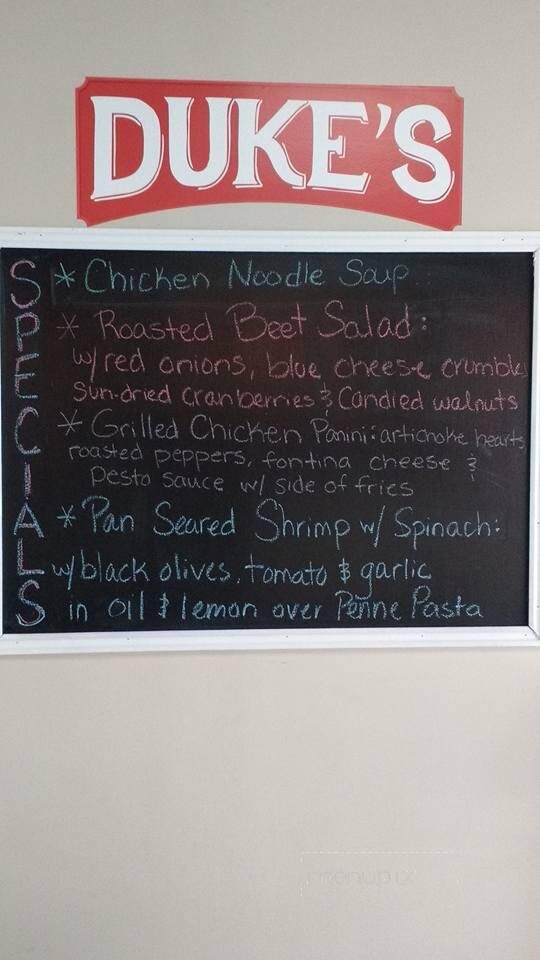 DUKE'S
SPECIALS
* Chicken Noodle Soup
* Roasted Beet Salad:
w/ red onions, blue cheese crumble
sun-dried cranberries & Candied walnuts
* Grilled Chicken Panini: artichoke hearts,
roasted peppers, fontina cheese &
pesto sauce w/ side of fries
* Pan Seared Shrimp w/ Spinach:
w/ black olives, tomato & garlic
in oil & lemon over Penne Pasta
menupix